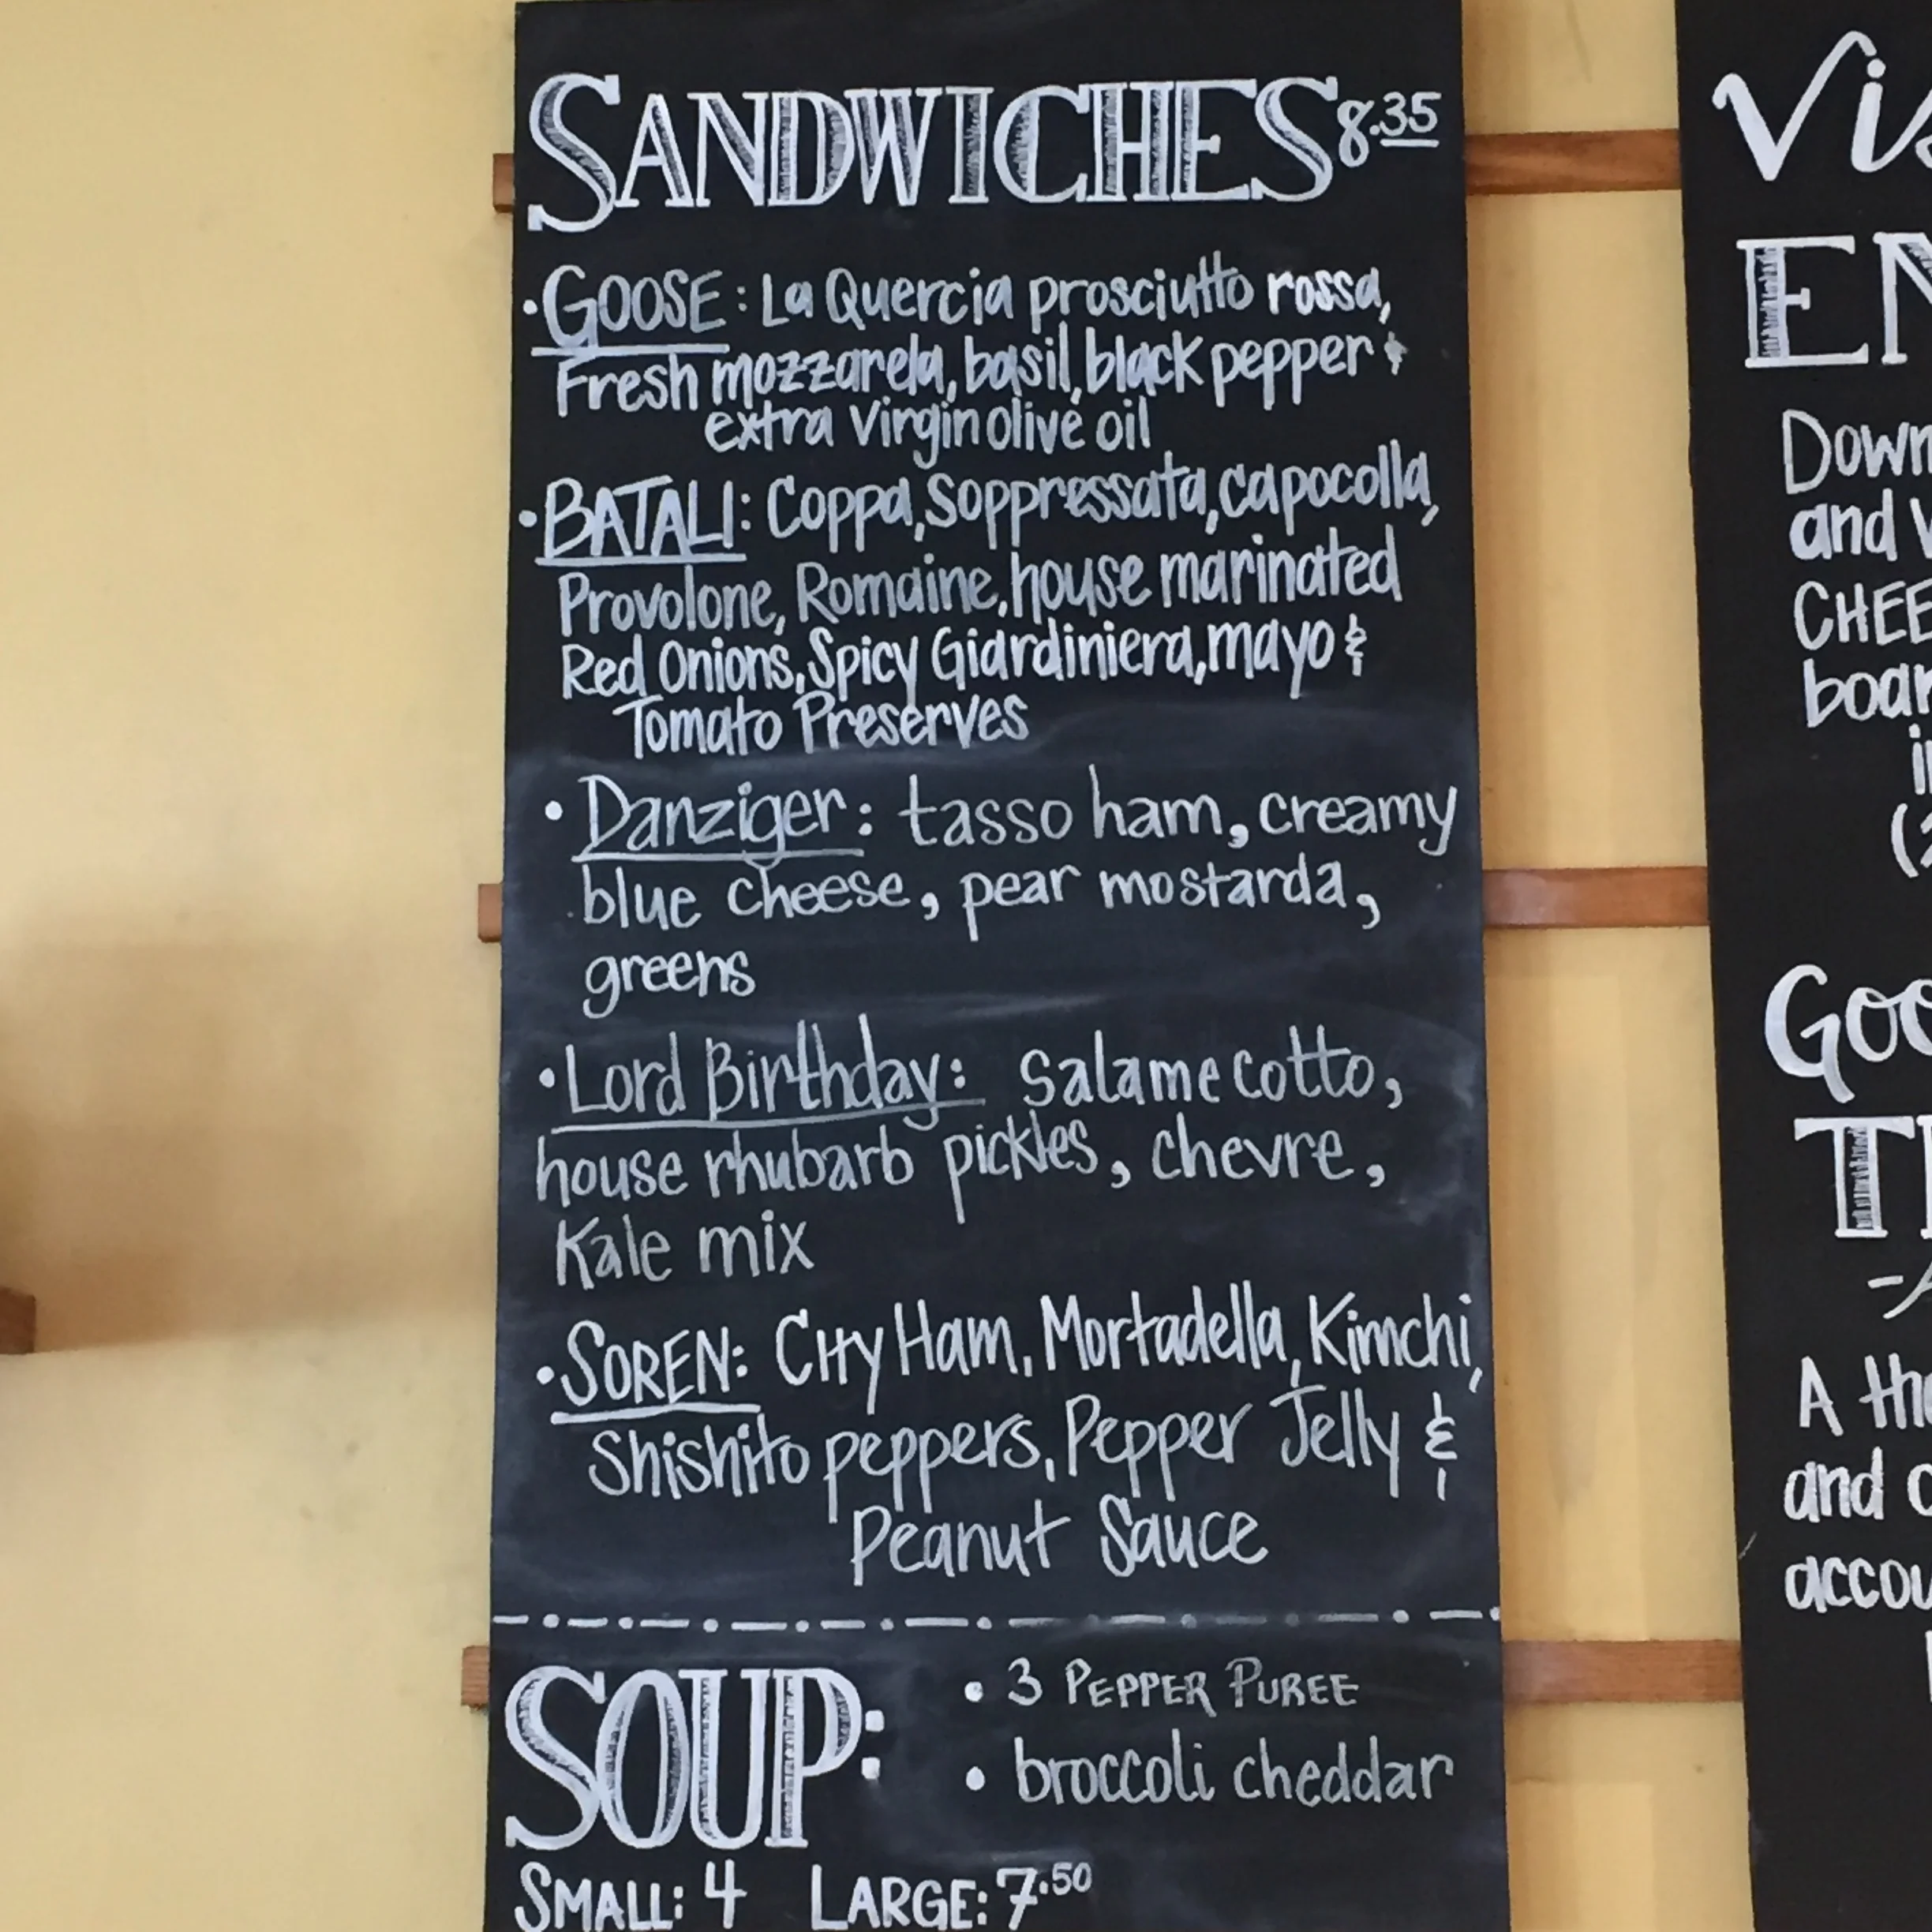 SANDWICHES 8.35
• GOOSE: La Quercia prosciutto rossa,
Fresh mozzarela, basil, black pepper &
extra virgin olive oil
• BATALI: Coppa, Soppressata, capocolla,
Provolone, Romaine, house marinated
Red Onions, Spicy Giardiniera, mayo &
Tomato Preserves
• Danziger: tasso ham, creamy
blue cheese, pear mostarda,
greens
• Lord Birthday: Salame cotto,
house rhubarb pickles, chevre,
Kale mix
• SOREN: City Ham, Mortadella, Kimchi,
Shishito peppers, Pepper Jelly &
Peanut Sauce
SOUP:
• 3 PEPPER PUREE
• broccoli cheddar
SMALL: 4 LARGE: 7.50
and
A
and